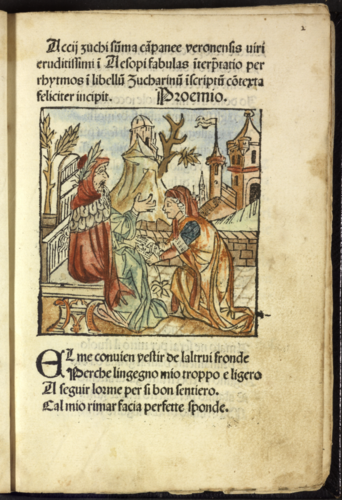 2
Accij zuchi sũma cãpanee veronensis uiri
eruditissimi ĩ Aesopi fabulas ĩterp̃tatio per
rhythmos ĩ libellũ Zucharinũ ĩscriptũ cõtexta
feliciter incipit. Proemio.
EL me conuien vestir de laltrui fronde
Perche lingegno mio troppo e ligero
A seguir lorme per si bon sentiero.
Cal mio rimar facia perfette sponde.